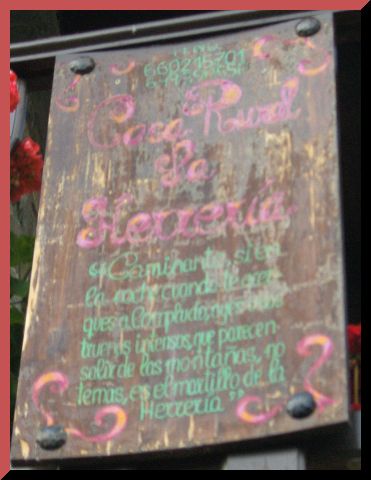 TFNO.
660215701
Casa Rural
La
Herrería
"Caminante, si en
la noche cuando te acer-
ques a Compludo, oyes
truenos intensos, que parecen
salir de las montañas, no
temas, es el martillo de la
Herrería"